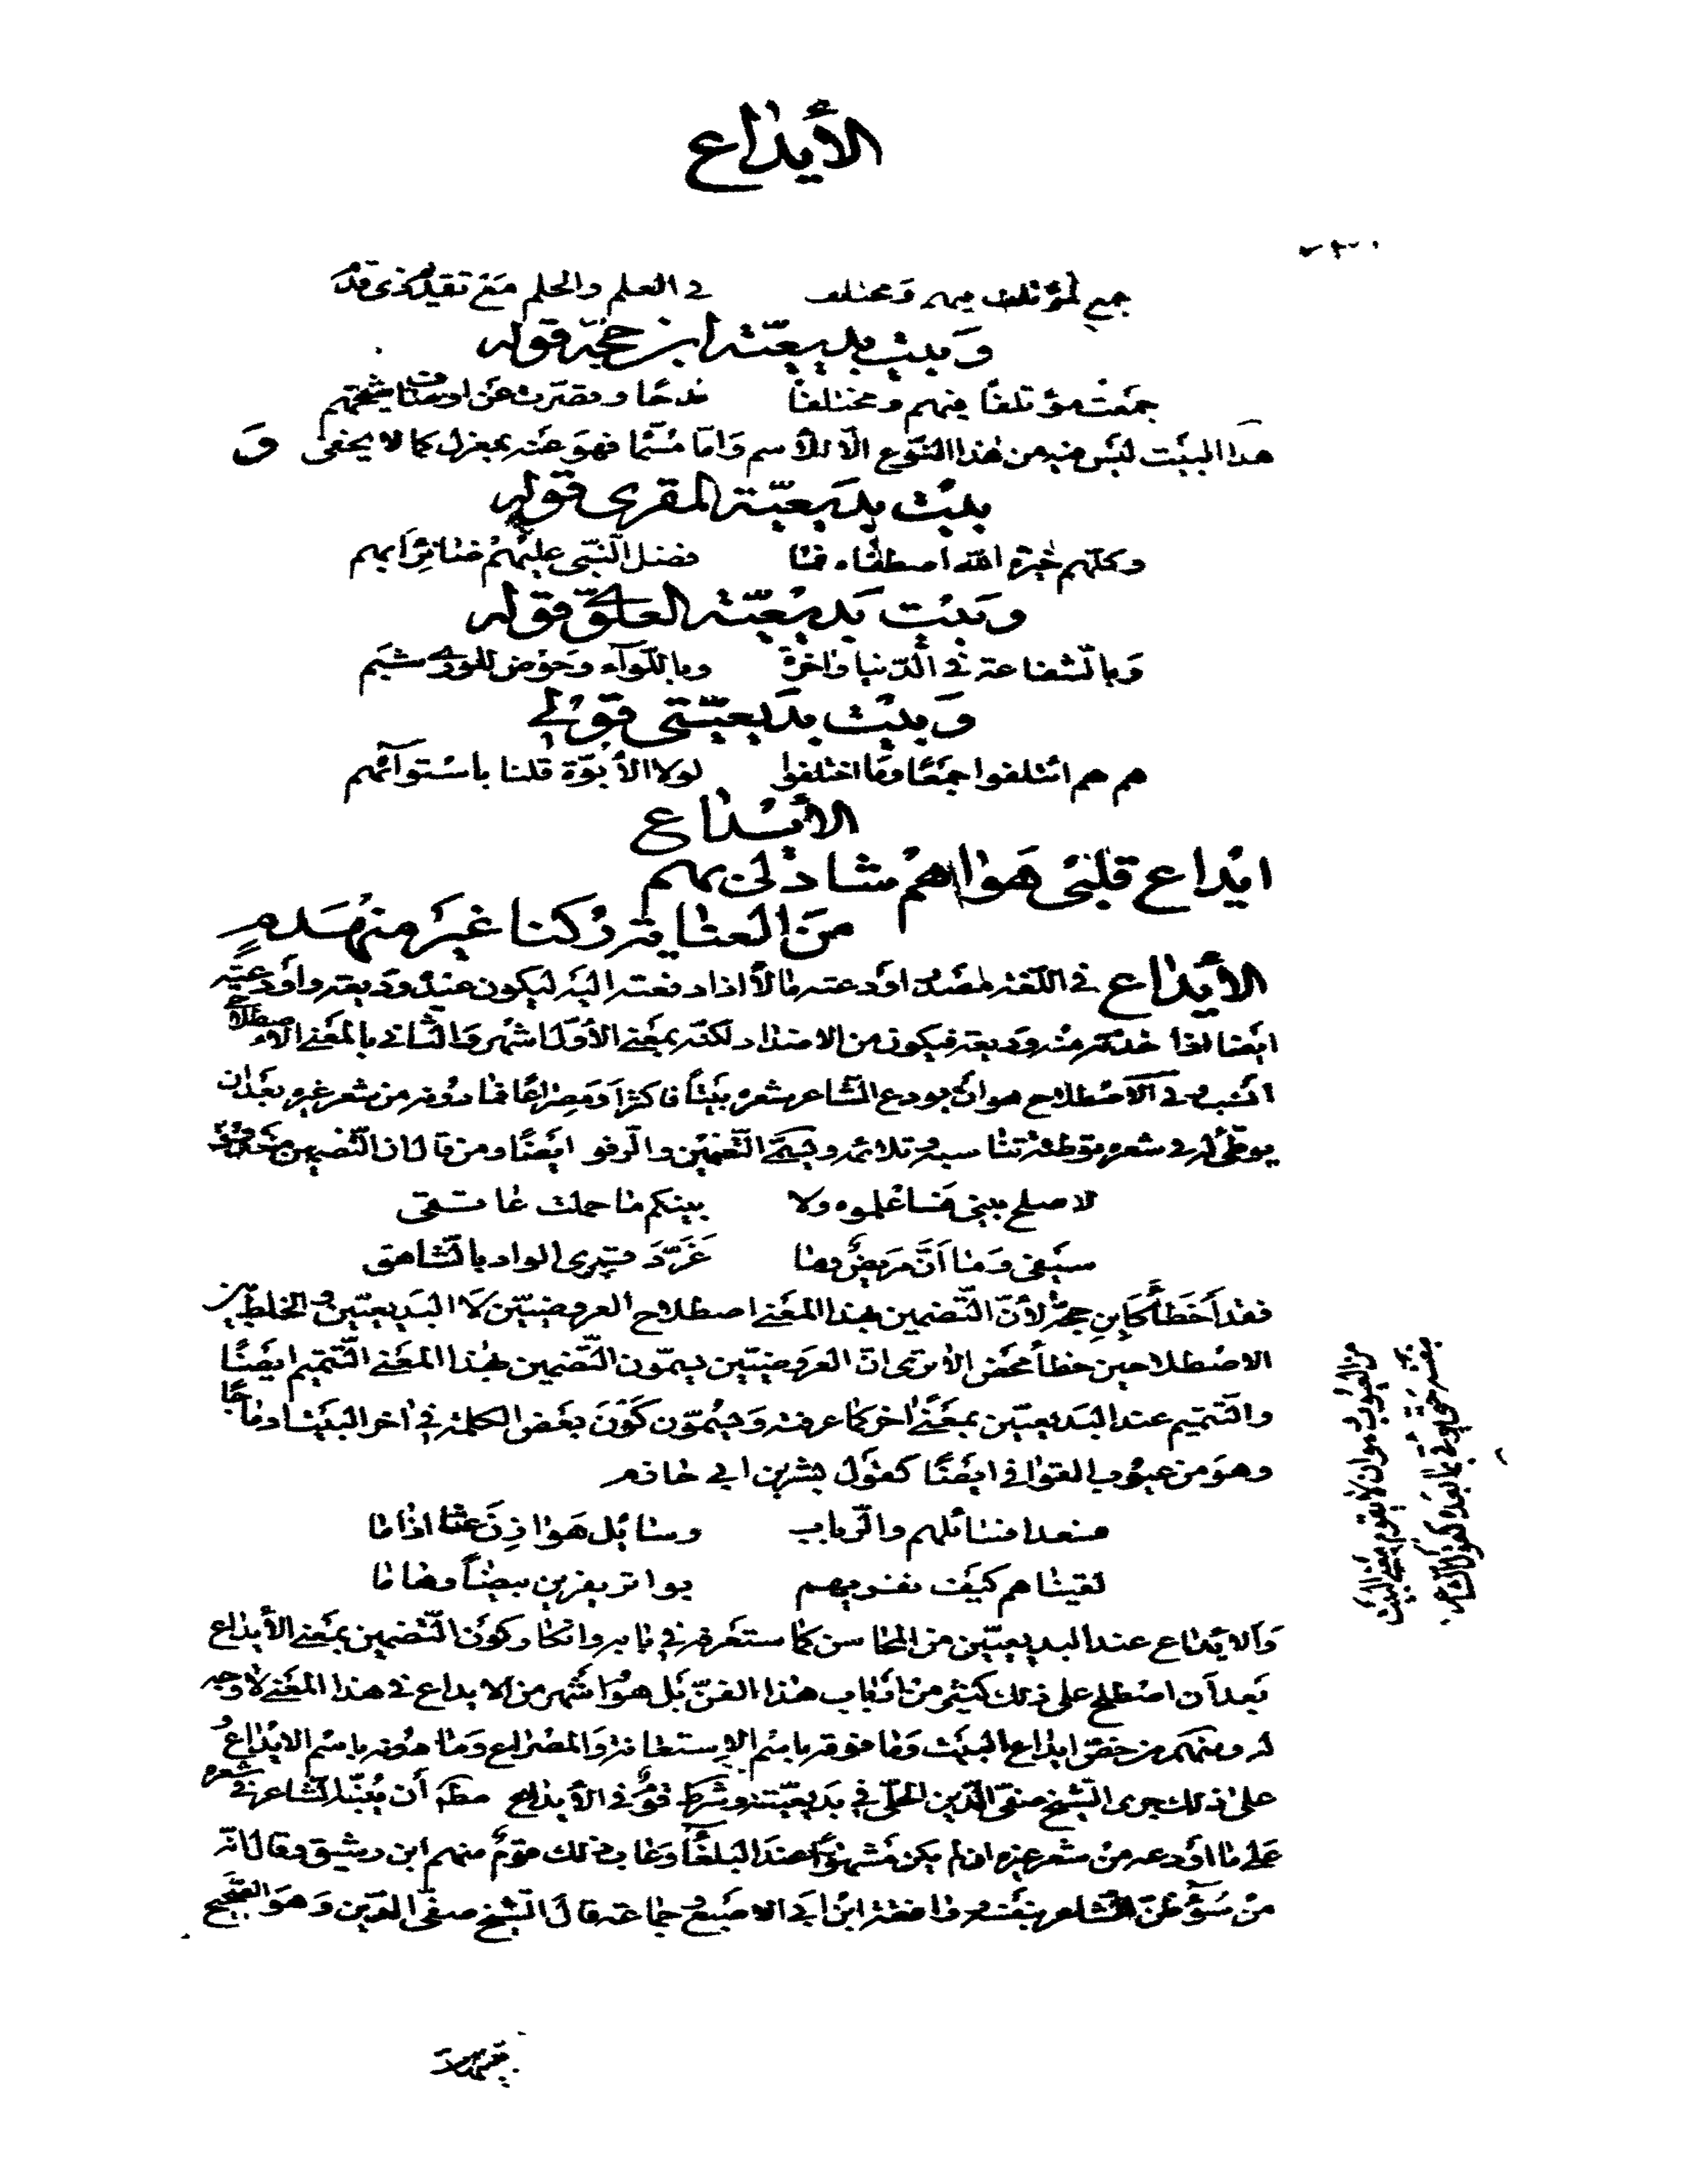 الأيداع
جمع لمؤتلف فيهم ومختلف في العلم والحلم مع تقديم ذي قدم
وبيت بديعيّة ابن حجّة قوله
جمعت مؤتلفًا فيهم ومختلفًا مدحًا وقصّرت عن اوصاف شيخهم
هذا البيت ليس فيه من هذا النّوع الّا الأسم وامّا مسمّا فهو عنه بمعزل كما لا يخفى و
بيت بديعيّة المقري قوله
وكلّهم خيرة الله اصطفاه فما فضل النّبي عليهم ضائرًا بهم
وبيت بديعيّة العلوي قوله
وبالشّفاعة في الدّنيا واخرة وباللّواء وحوض للورى شبم
وبيت بديعيّتي قولي
هم هم ائتلفوا جمعًا وما اختلفوا لولا الأبوّة قلنا باستوائهم
الأيداع
ايداع قلبي هواهم شاد لي بهم
من العناية ركنا غير منهدم
الأيداع في اللّغة مصدر اودعته مالًا اذا دفعته اليه ليكون عنده وديعة وأودعته
ايضا اذا اخذته منه وديعة فيكون من الاضداد لكنّه بمعنى الأوّل اشهر والثّاني بالمعنى الاصطلاحي
انسب وفي الاصطلاح هو ان يودع الشّاعر شعره بيتًا فاكثر او مصراعًا فما دونه من شعر غيره بعد ان
يوطّئ له في شعره توطئة تناسبه وتلائمه ويسمّى التّضمين والرّفو ايضًا ومن قال ان التّضمين
لا صلح بيني فاعلموه ولا بينكم ما حملت عاتقي
سيفي وما انّ مريض وما غرّد قمري الواد بالشّاهق
فقد اخطأ كابن حجّة لأنّ التّضمين بهذا المعنى اصطلاح العروضيّين لا البديعيّين والخلط بين
الاصطلاحين خطأ محض الا ترى انّ العروضيّين يسمّون التّضمين بهذا المعنى التّتميم ايضًا
والتّتميم عند البديعيّين بمعنى اخر كما عرفته ويسمّون كون بعض الكلمة في اخر البيت ادماجًا
وهو من عيوب القوافي ايضًا كقول بشر بن ابي خازم
فسعدا فسائلهم والرّباب وسائل هوازن عنّا اذا ما
لقيناهم كيف نفريهم بواتر يفرين بيضًا وهاما
والايداع عند البديعيّين من المحاسن كما ستعرفه في بابه وانكار كون التّضمين بمعنى الأيداع
بعد أن اصطلح على ذلك كثير من ارباب هذا الفنّ بل هو اشهر من الايداع في هذا المعنى لا وجه
له ومنهم من خصّ ايداع البيت وما فوقه باسم الاستعانة والمصراع وما دونه باسم الايداع و
على ذلك جرى الشّيخ صفيّ الدّين الحلّي في بديعيّته وشرط قوم في الأيداع أن ينبّه الشّاعر في شعره
على ما اودعه من شعر غيره ان لم يكن مشهورًا عند البلغاء وعاب ذلك قوم منهم ابن رشيق وقال انّه
من سوء ظنّ الشّاعر بنفسه ووافقه ابن ابي الاصبع وجماعة قال الشّيخ صفيّ الدّين وهو الصّحيح
من العيوب هو ان لا يقوم معنى البيت
بنفسه حتّى يؤتى بما بعده كقول الشّاعر